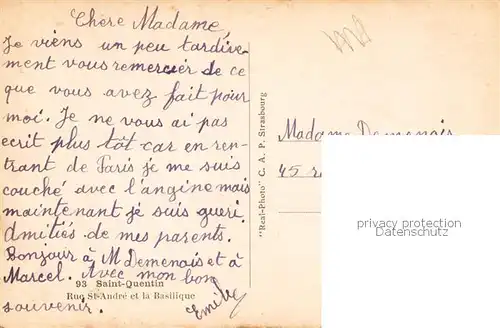 Chère Madame,
Je viens un peu tardive-
ment vous remercier de ce
que vous avez fait pour
moi. Je ne vous ai pas
ecrit plus tôt car en ren-
trant de Paris je me suis
couché avec l'angine mais
maintenant je suis gueri.
Amitiés de mes parents.
Bonjour à M Demenois et à
Marcel. Avec mon bon
souvenir.
93 Saint-Quentin
Rue St-André et la Basilique
"Real-Photo" C. A. P. Strasbourg
Madame Demenois
45
privacy protection
www.oldthing.de